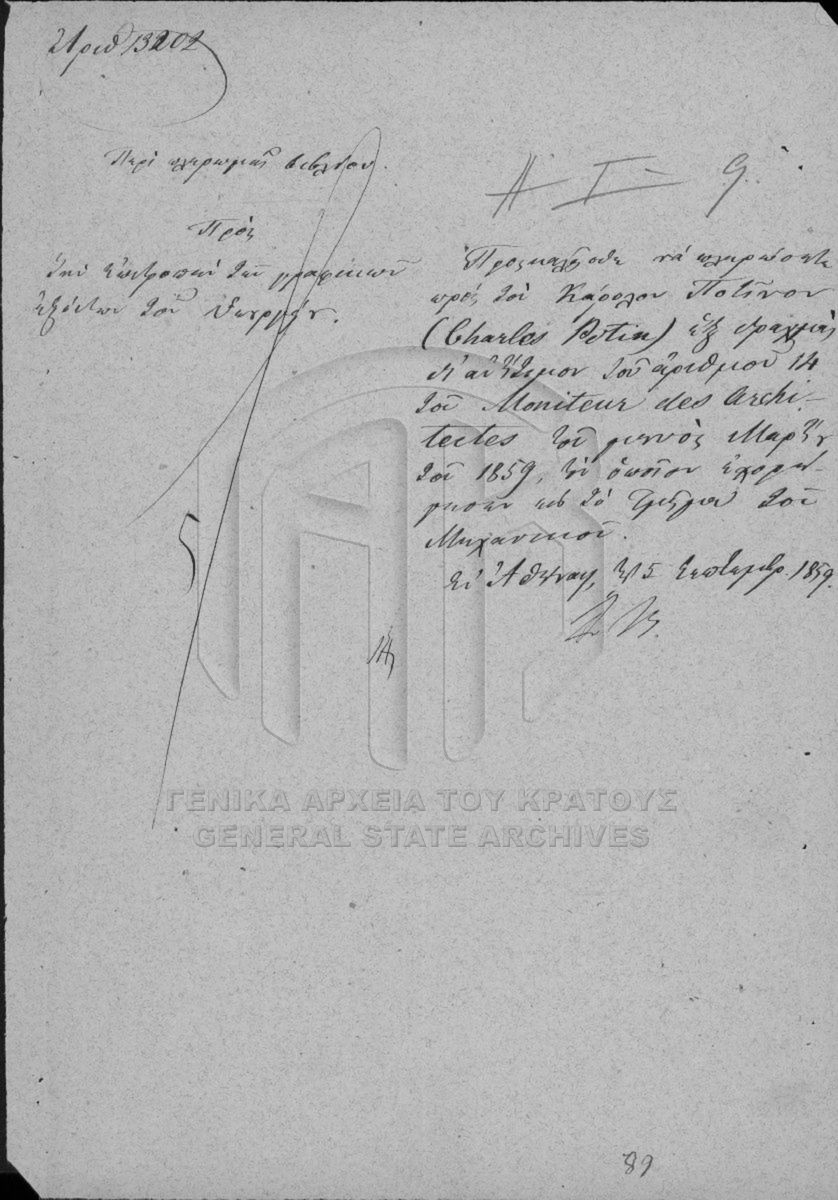 Ἀριθ 13202
Περὶ πληρωμῆς βιβλίου.
Πρὸς
τὴν ἐπιτροπὴν τῶν γραφικῶν
ἐξόδων τοῦ Ὑπουργείου.
Α - Ι - 9.
Προσκαλεῖσθε νὰ πληρώσητε
πρὸς τὸν Κάρολον Ποτῖνον
(Charles Potin) ἓξ δραχμὰς
δι' ἀντίτιμον τοῦ ἀριθμοῦ 14
τοῦ Moniteur des Archi-
tectes τοῦ μηνὸς Μαρτίου
τοῦ 1859, τὸν ὁποῖον ἐχορή-
γησεν εἰς τὸ Τμῆμα τοῦ
Μηχανικοῦ.
Ἐν Ἀθήναις, τῇ 5 Σεπτεμβρ. 1859.
ΓΕΝΙΚΑ ΑΡΧΕΙΑ ΤΟΥ ΚΡΑΤΟΥΣ
GENERAL STATE ARCHIVES
89